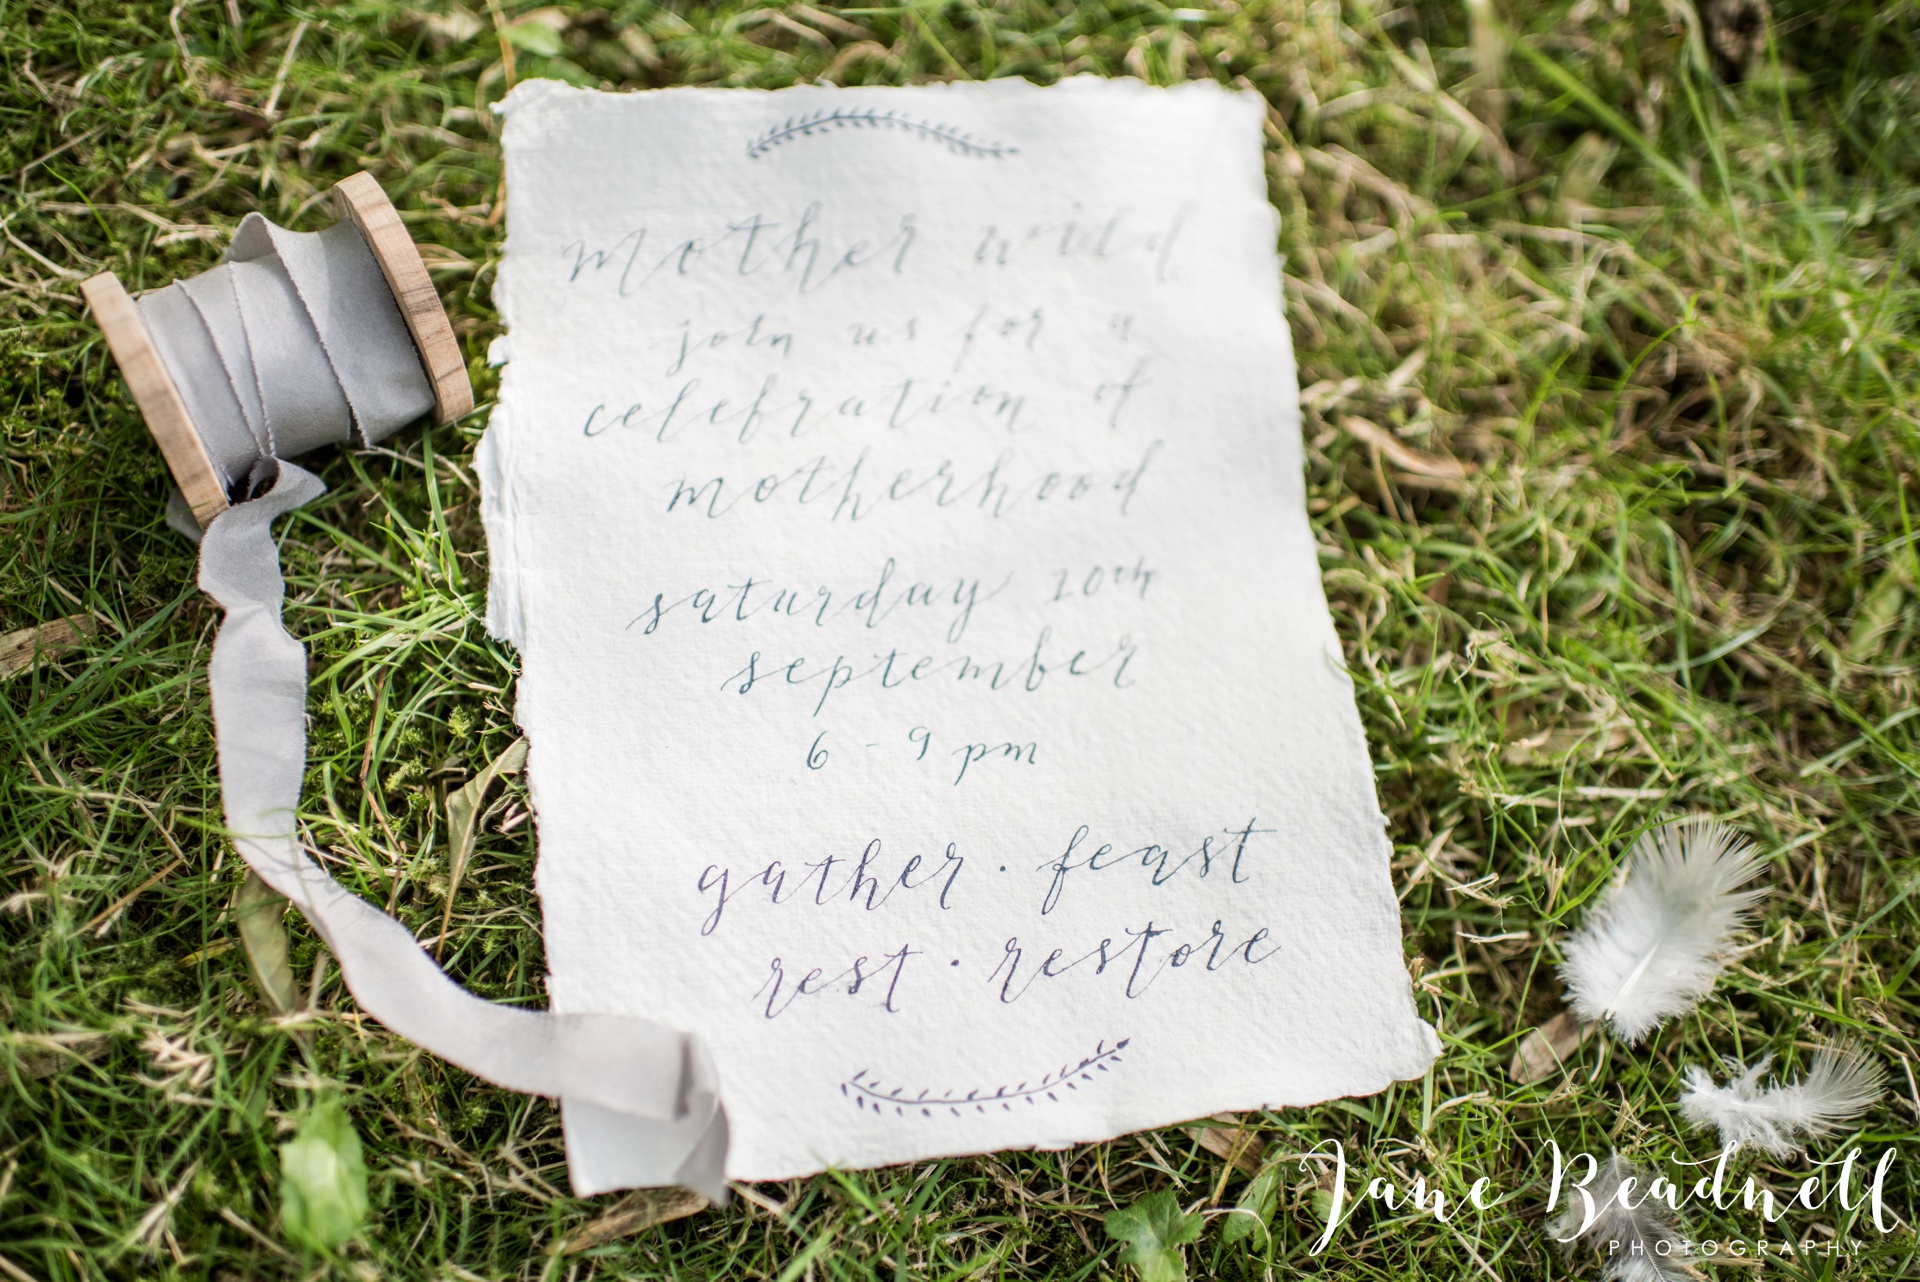 mother wild
join us for a
celebration of
motherhood
saturday 10th
september
6 - 9 pm
gather · feast
rest · restore
Jane Beadnell
PHOTOGRAPHY